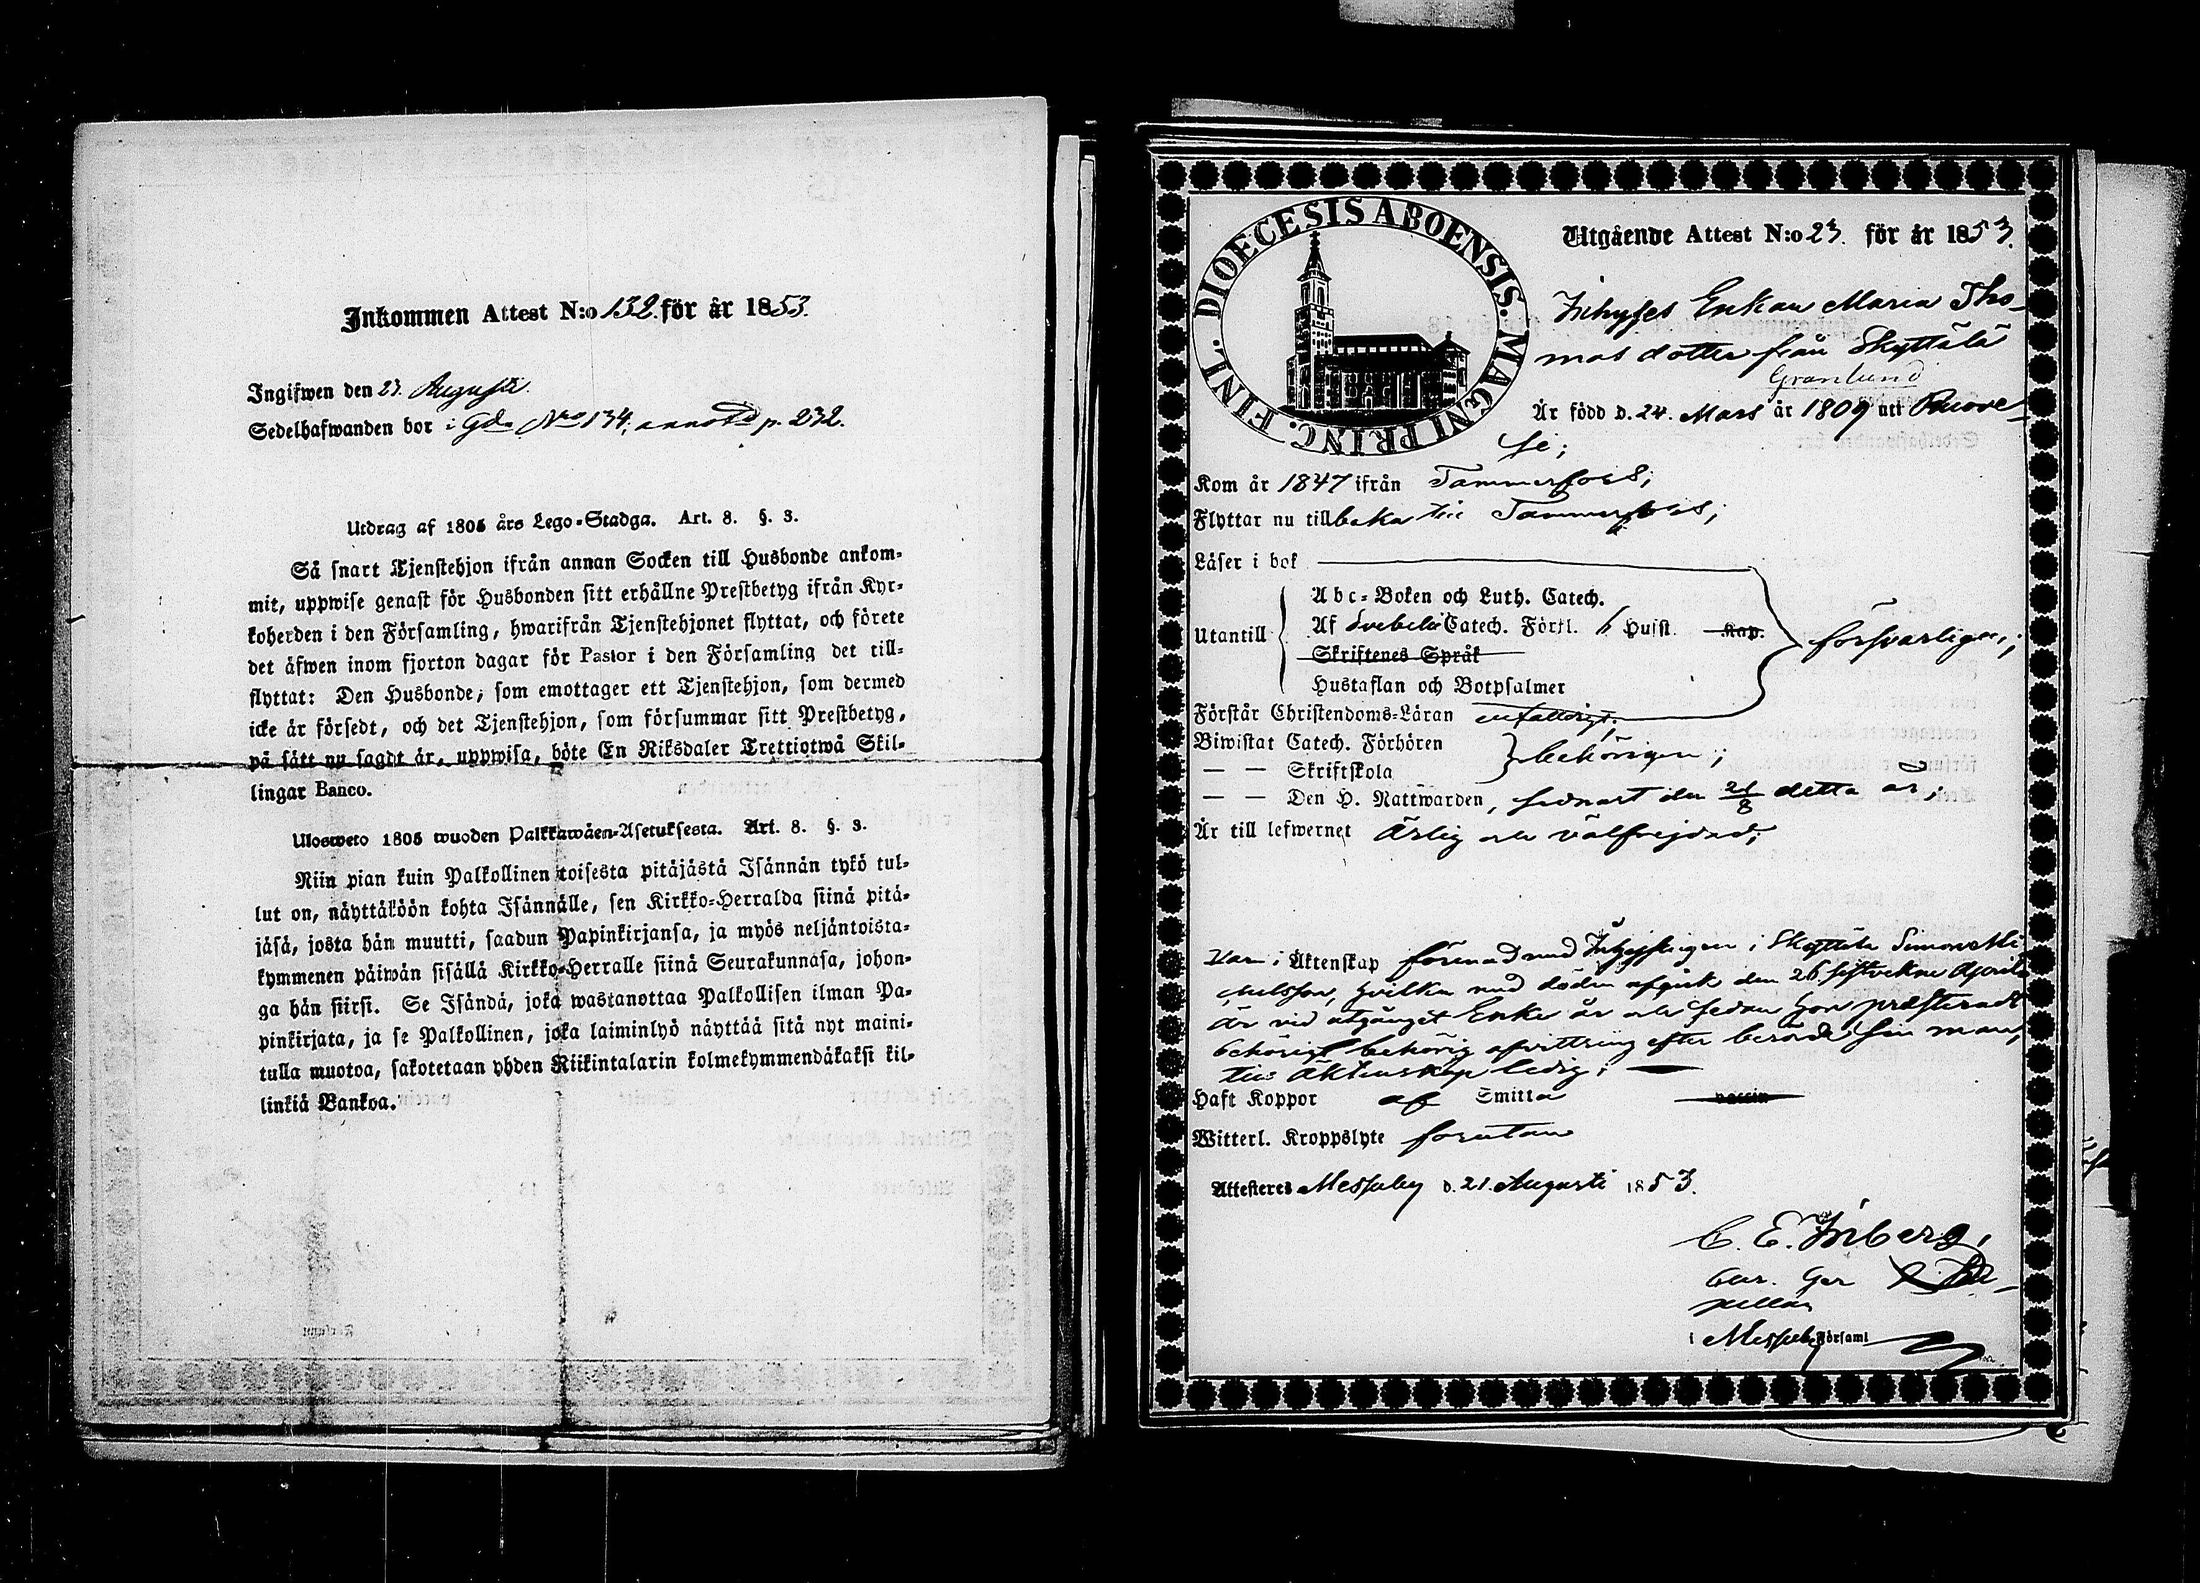 Inkommen Attest N:o 132. för år 1853.
Ingifwen den 23. Augusti.
Sedelhafwanden bor i Gdn Nro 134; annotd p. 232.
Utdrag af 1805 års Lego-Stadga. Art. 8. §. 3.
Så snart Tjenstehjon ifrån annan Socken till Husbonde ankom-
mit, uppwise genast för Husbonden sitt erhållne Prestbetyg ifrån Kyr-
koherden i den Församling, hwarifrån Tjenstehjonet flyttat, och förete
det äfwen inom fjorton dagar för Pastor i den Församling det till-
flyttat: Den Husbonde, som emottager ett Tjenstehjon, som dermed
icke är försedt, och det Tjenstehjon, som försummar sitt Prestbetyg,
på sätt nu sagdt är, uppwisa, böte En Riksdaler Trettiotwå Skil-
lingar Banco.
Ulosweto 1805 wuoden Palkkawäen-Asetuksesta. Art. 8. §. 3.
Niin pian kuin Palkollinen toisesta pitäjästä Isännän tykö tul-
lut on, näyttäköön kohta Isännälle, sen Kirkko-Herralda siinä pitä-
jäsä, josta hän muutti, saadun Papinkirjansa, ja myös neljäntoista-
kymmenen päiwän sisällä Kirkko-Herralle siinä Seurakunnasa, johon-
ga hän siirsi. Se Isändä, joka wastanottaa Palkollisen ilman Pa-
pinkirjata, ja se Palkollinen, joka laiminlyö näyttää sitä nyt maini-
tulla muotoa, sakotetaan yhden Riikintalarin kolmekymmendäkaksi kil-
linkiä Bankoa.
DIOECESIS ABOENSIS. MAGNI PRINC. FINL.
Utgående Attest N:o 23. för år 1853.
Inhyses Enkan Maria Tho-
mas dotter från Skyttälä
Granlund
Är född d. 24. Mars år 1809 att Ruove-
si;
Kom år 1847 ifrån Tammerfors;
Flyttar nu tillbaka till Tammerfors;
Läser i bok
Abc-Boken och Luth. Catech.
Utantill Af Svebelii Catech. Förkl. 6 Hufst. Kap. försvarligen;
Skriftenes Språk
Hustaflan och Botpsalmer
Förstår Christendoms-Läran enfalldigt.
Biwistat Catech. Förhören
— — Skriftskola behörigen;
— — Den H. Nattwarden, sednast den 21/8 detta år;
Är till lefwernet Ärlig och välfrejdad;
Var i Äktenskap förenad med Inhysingen i Skyttälä Simon Mi
chelsson, hvilken med döden afgick den 26 sistvekne Aprilis
Är vid utgånget Enke år och sedan hon præsteradt
behörigt behörig afvittring efter berörde sin man,
till Äktenskap ledig.
Haft Koppor af Smitta vaccin
Witterl. Kroppslyte förutan
Attesteres Messuby d. 21. Augusti 1853.
C. E. Friberg,
Cur. Ger
pellan
i Messuby Församl